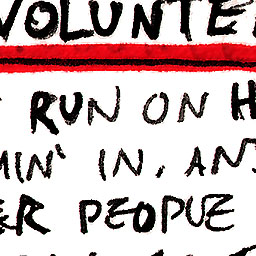 VOLUNTE
RUN ON H
MIN' IN, AN
ER PEOPLE